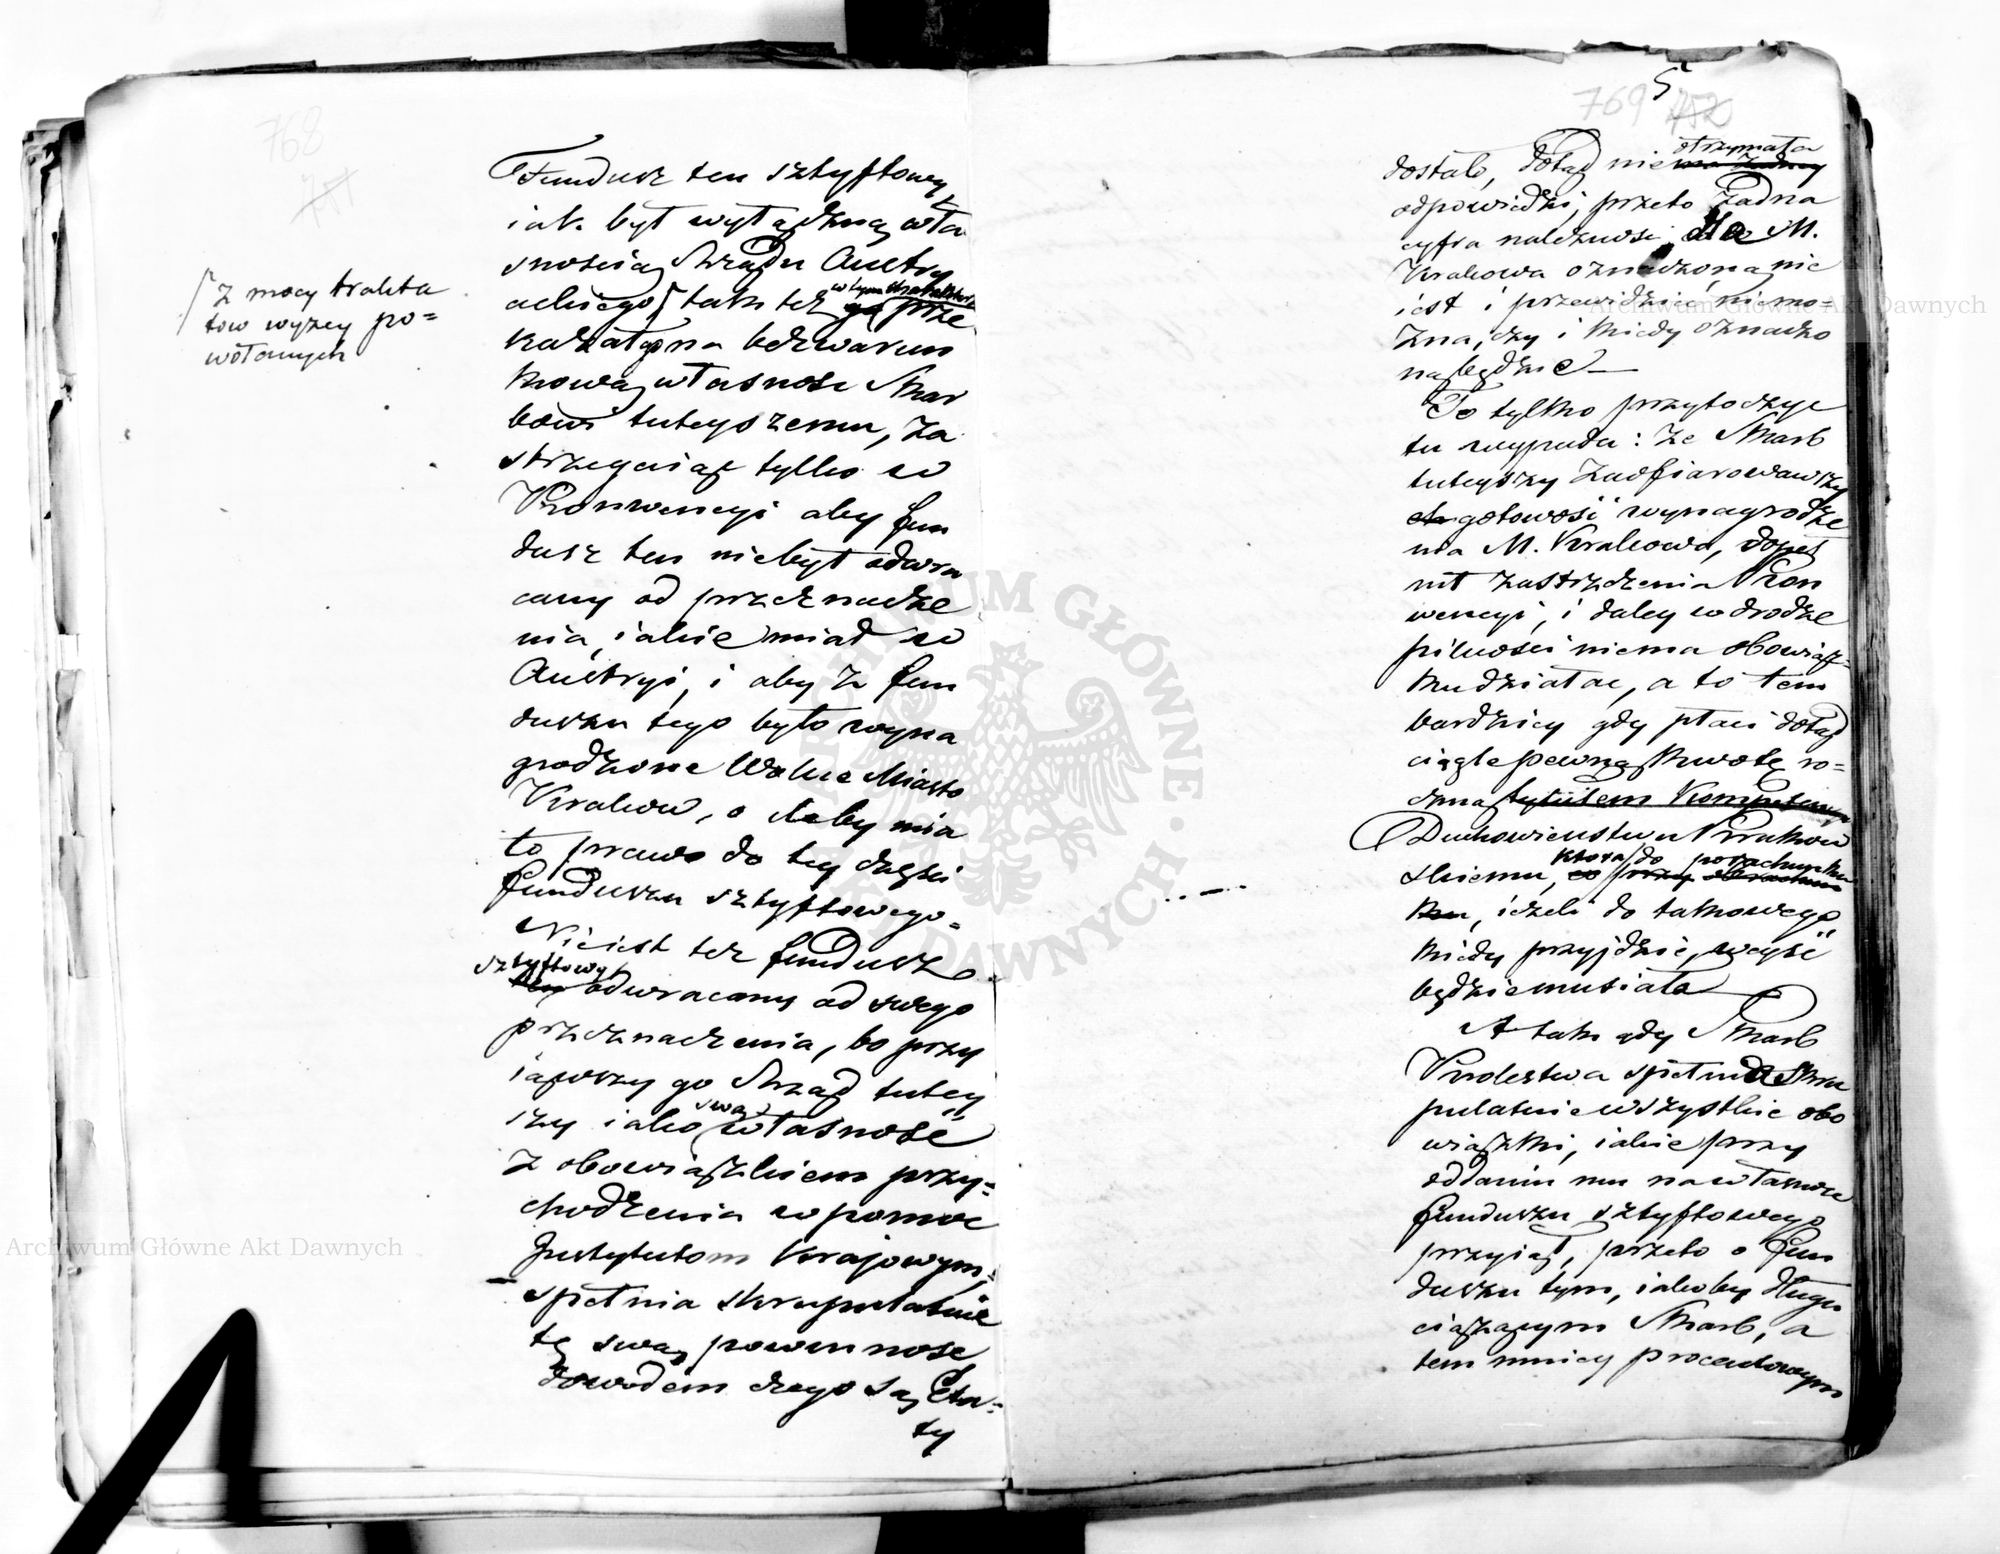 768
Fundusz ten sztyftowy,
iak był wyłączną wła
snością Rządu Austry
ackiego, tak też w tym charakterze ~~go~~ prze
kazał go na bezwarun
kową własność Skar
bowi tuteyszemu, za
strzegaiąc tylko w
Konwencyi aby fun
dusz ten niebył odwra
cany od przeznacze
nia, iakie miał w
Austryi, i aby z fun
duszu tego było wyna
grodzone Wolne Miasto
Kraków, o ileby mia
ło prawo do tey części
funduszu sztyftowego.
Nieiest też fundusz
sztyftowy
~~ten~~ odwracany od swego
przeznaczenia, bo przy
iąwszy go Rząd tutey
szy iako swą własność
z obowiązkiem przy=
chodzenia w pomoc
Instytutom Krajowym,
spełnia skrupulatnie
tę swą powinność
dowodem czego są Eta=
ty
Z mocy trakta
tow wyżey po=
wołanych
769
5
otrzymała
dostało, dotąd nie~~ma żadney~~
odpowiedzi, przeto żadna
cyfra należności dla M.
Krakowa oznaczoną nie
iest i przewidzieć niemo=
żna, czy i kiedy oznaczo
ną będzie
To tylko przytoczyć
tu wypada: że Skarb
tuteyszy zaofiarowawszy
gotowość wynagrodze
nia M. Krakowa, dopeł
nił zastrzeżenia Kon
wencyi, i daley w drodze
pilności niema obowiąz=
ku działać, a to tem
bardziey gdy płaci dotąd
ciągle pewną kwotę ro=
czną ~~tytułem Kompetencyi~~
Duchowieństwu Krakow
która do porachunku
skiemu, ~~co przy obrachun~~
~~ku~~, ieżeli do takowego
kiedy przyjdzie, weyść
będzie musiała
A tak gdy Skarb
Królestwa spełnia skru
pulatnie wszystkie obo
wiązki, iakie przy
oddaniu mu na własność
funduszu sztyftowego
przyiął, przeto o fun
duszu tym, iakoby długu
ciążącym Skarb, a
tem mniey procentowym
Archiwum Główne Akt Dawnych
Archiwum Główne Akt Dawnych
ARCHIWUM GŁÓWNE AKT DAWNYCH